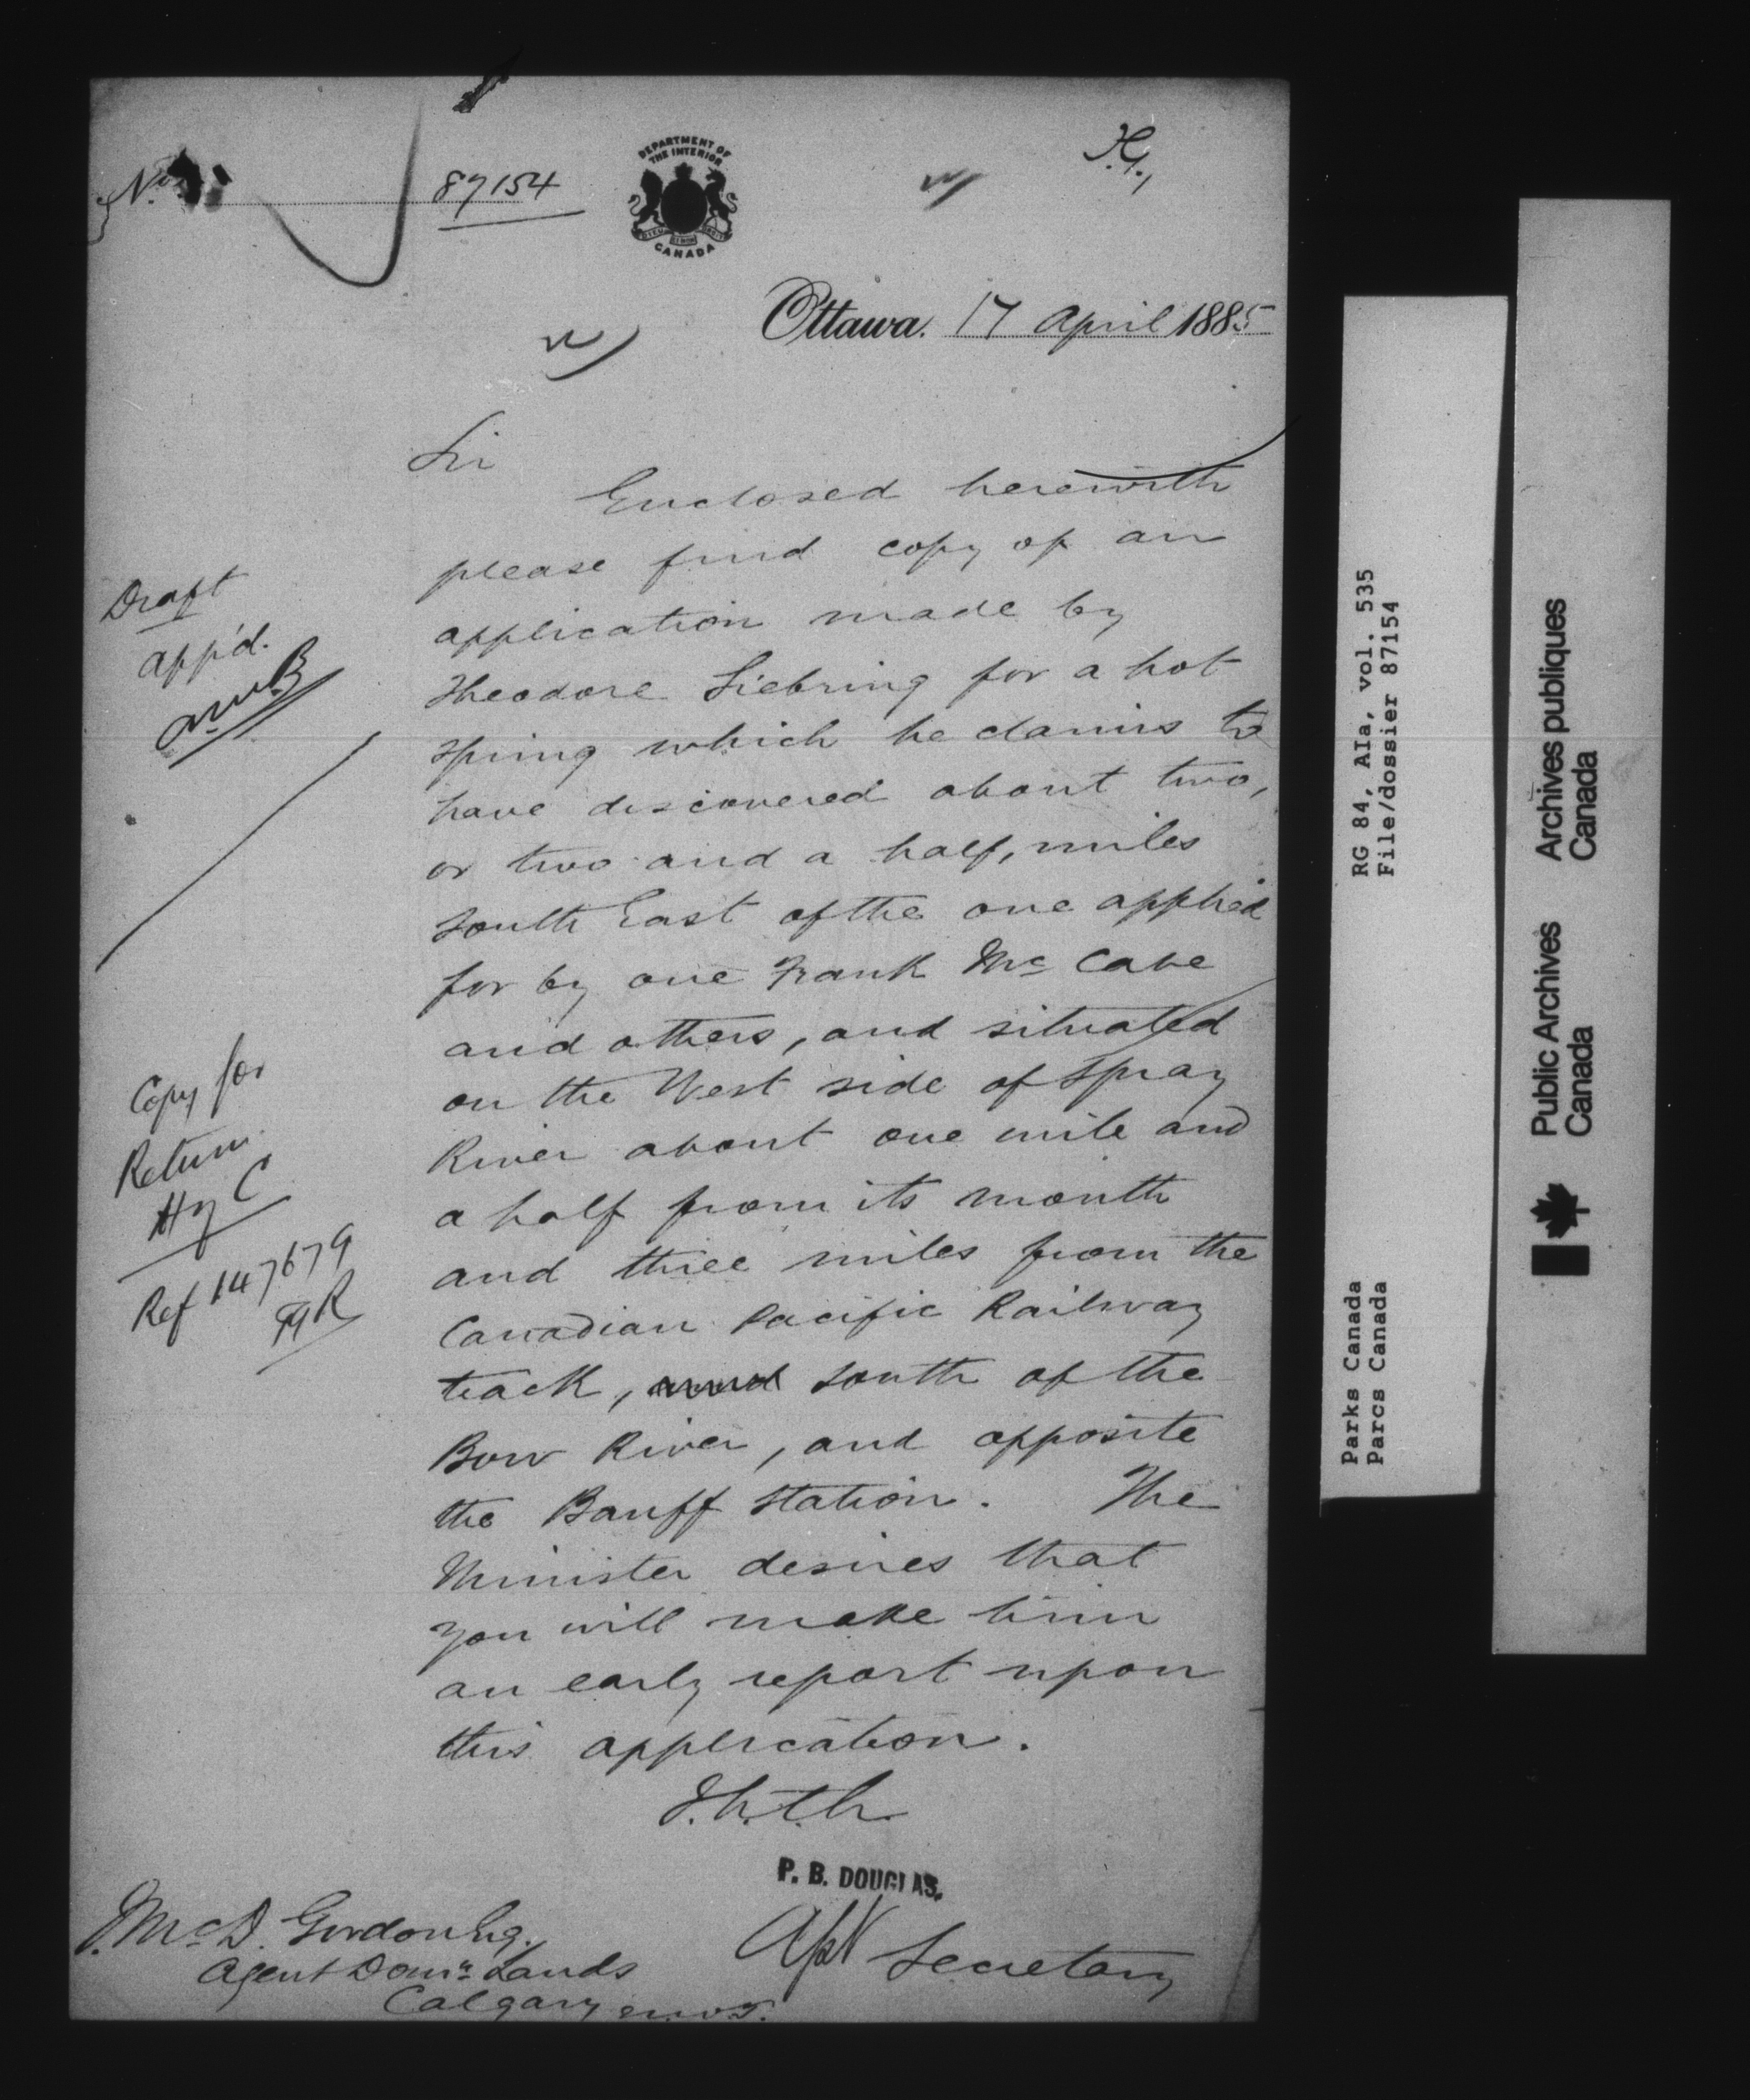 No. 87154
DEPARTMENT OF
THE INTERIOR
CANADA
Ottawa. 17 April 1885
Sir
Enclosed herewith
please find copy of an
application made by
Theodore Siebring for a hot
spring which he claims to
have discovered about two,
or two and a half, miles
South East of the one applied
for by one Frank McCabe
and others, and situated
on the West side of Spray
River about one mile and
a half from its mouth
and three miles from the
Canadian Pacific Railway
track, south of the
Bow River, and opposite
the Banff Station. The
Minister desires that
you will make him
an early report upon
this application.
P. B. DOUGLAS,
Asst Secretary
J. McD. Gordon Esq.
Agent Domn Lands
Calgary N.W.T.
Draft
app'd.
A.M.B
Copy for
Return
Hy C
Ref 147679
RG 84, AIa, vol. 535
File/dossier 87154
Parks Canada
Parcs Canada
Public Archives
Canada
Archives publiques
Canada